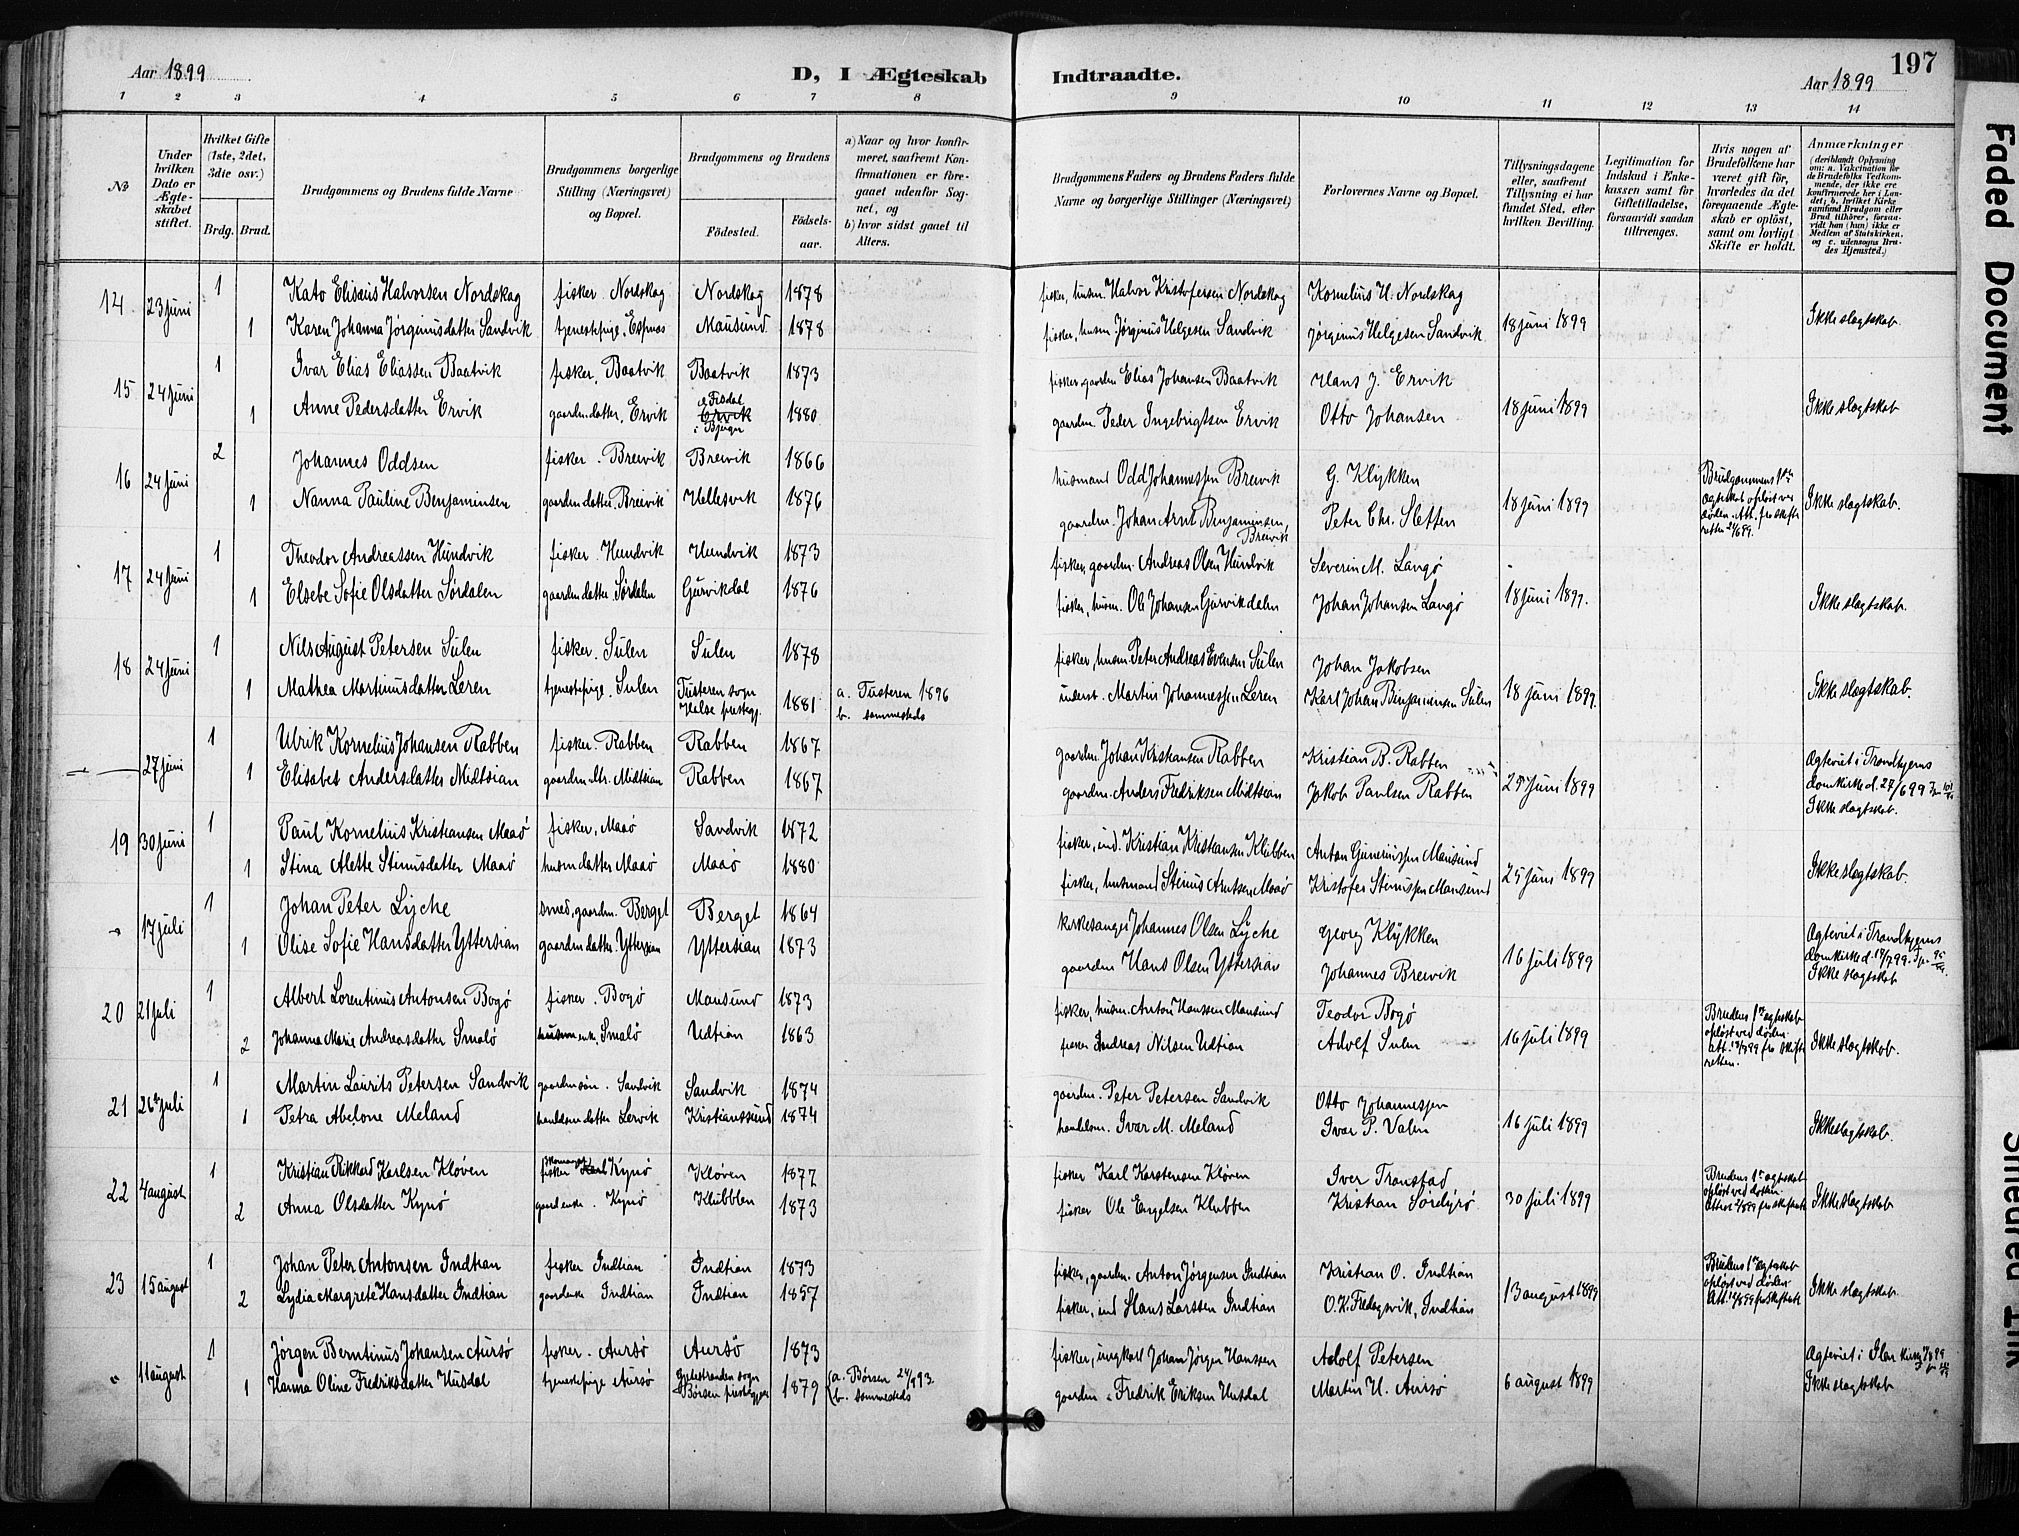 Aar 1899 D, I Ægteskab Indtraadte. Aar 1899 197
1 2 3 4 5 6 7 8 9 10 11 12 13 14
No
Under hvilken Dato er Ægteskabet stiftet.
Hvilket Gifte (1ste, 2det, 3die osv.)
Brdg. Brud.
Brudgommens og Brudens fulde Navne
Brudgommens borgerlige Stilling (Næringsvei) og Bopæl.
Brudgommens og Brudens
Födested. Födsels-aar.
a) Naar og hvor konfirmeret, saafremt Konfirmationen er foregaaet udenfor Sognet, og
b) hvor sidst gaaet til Alters.
Brudgommens Faders og Brudens Faders fulde Navne og borgerlige Stillinger (Næringsvei)
Forlovernes Navne og Bopæl.
Tillysningsdagene eller, saafremt Tillysning ei har fundet Sted, efter hvilken Bevilling.
Legitimation for Indskud i Enkekassen samt for Giftetilladelse, forsaavidt saadan tiltrænges.
Hvis nogen af Brudefolkene har været gift för, hvorledes da det foregaaende Ægteskab er oplöst, samt om lovligt Skifte er holdt.
Anmærkninger
(deriblandt Oplysning om: a. Vakcination for de Brudefolks Vedkommende, der ikke ere konfirmerede her i Landet; b. hvilket Kirkesamfund Brudgom eller Brud tilhörer, forsaavidt han (hun) ikke er Medlem af Statskirken, og c. udensogns Brudes Hjemsted.)
14 23 juni 1 Kato Elisæus Halvorsen Nordskag fisker. Nordskag Nordskag 1878 fisker, husm. Halvor Kristofersen Nordskag Kornelius H. Nordskag
1 Karen Johanna Jørginusdatter Sandvik tjenestepige. Espnes Mausund 1878 fisker, husm. Jørginus Helgesen Sandvik Jørginus Helgesen Sandvik 18 juni 1899 Ikke slægtskab.
15 24 juni 1 Ivar Elias Eliassen Baatvik fisker, Baatvik Baatvik 1873 fisker, gaardm. Elias Johansen Baatvik Hans J. Ervik
1 Anne Pedersdatter Ervik gaardm datter, Ervik Ervik i Bjugn 1880 gaardm. Peder Ingebrigtsen Ervik Otto Johansen 18 juni 1899 Ikke slægtskab
16 24 juni 2 Johannes Oddsen fisker. Breivik Breivik 1866 husmand Odd Johannessen Breivik G. Klykken Brudgommens 1ste ægteskab opløst ved døden. Att. fra skifteretten
1 Nanna Pauline Benjaminsen gaardm datter. Breivik Hellesvik 1876 gaardm. Johan Arnt Benjaminsen, Breivik Peter Chr. Sletten 18 juni 1899 Ikke slægtskab.
17 24 juni 1 Theodor Andreassen Hundvik fisker. Hundvik Hundvik 1873 fisker, gaardm. Andreas Olsen Hundvik Severin M. Langø
1 Elsebe Sofie Olsdatter Sørdalen gaardm datter. Sørdalen Gurvikdal 1876 fisker, husm. Ole Johansen Gurvikdalen Johan Johansen Langø 18 juni 1899. Ikke slægtskab.
18 24 juni 1 Nils August Petersen Sulen fisker. Sulen Sulen 1878 fisker, husm Peter Andreas Evensen Sulen Johan Jakobsen
1 Mathea Martinusdatter Leren tjenestepige. Sulen Tusteren sogn 1881 a. Tusteren 1896 b. sammesteds inderst. Martin Johannessen Leren Karl Johan Benjaminsen Sulen 18 juni 1899. Ikke slægtskab.
27 juni 1 Ulrik Kornelius Johansen Rabben fisker. Rabben Rabben 1867 gaardm. Johan Kristiansen Rabben Kristian B. Rabben Ægteviet i Trondhjems domkirke d. 27/6 99
1 Elisabet Andersdatter Midtsian gaardm dtr. Midtsian Rabben 1867 gaardm. Anders Fredriksen Midtsian Jakob Paulsen Rabben 25 juni 1899 Ikke slægtskab.
19 30 juni 1 Paul Kornelius Kristiansen Maaø fisker, Maaø Sandvik 1872 fisker, ind. Kristian Kristiansen Klubben Anton Gunerius(sen) Mausund
1 Stina Alette Stinusdatter Maaø husm datter Maaø Maaø 1880 fisker, husmand Stinus Arntsen Maaø Kristofer Stinussen Mausund 25 juni 1899 Ikke slægtskab.
17 juli 1 Johan Peter Lyche smed, gaardm. Berget Berget 1864 kirkesanger Johannes Olsen Lyche Georg Klykken Ægteviet i Trondhjems domkirke d.
1 Olise Sofie Hansdatter Yttersian gaardm datter. Yttersian Yttersian 1873 gaardm Hans Olsen Yttersian Johannes Breivik 16 juli 1899 Ikke slægtskab
20 21 juli 1 Albert Lorentinus Antonsen Bogø fisker. Bogø Mausund 1873 fisker, husm. Anton Hanssen Mausund Teodor Bogø Brudens 1ste ægteskab opløst ved døden. Att. fra skifteretten.
2 Johanna Marie Andreasdatter Smalø Smalø Udtian 1863 fisker Andreas Nilsen Udtian Adolf Sulen 16 juli 1899 Ikke slægtskab.
21 26 juli 1 Martin Laurits Petersen Sandvik gaardm søn. Sandvik Sandvik 1874 gaardm. Peter Petersen Sandvik Otto Johannessen
1 Petra Abelone Meland handelsm datter Lervik Kristianssund 1874 handelsm. Ivar M. Meland Ivar P. Valen 16 juli 1899 Ikke slægtskab.
22 4 august 1 Kristian Rikkard Karlsen Kløven fisker Kynø Kløven 1877 fisker Karl Karstensen Kløven Iver Transtad Brudens 1ste ægteskab opløst ved døden.
2 Anna Olsdatter Kynø gaardm enke. Kynø Klubben 1873 fisker Ole Engelsen Klubben Kristian Sørdyrø 30 juli 1899 Ikke slægtskab
23 15 august 1 Johan Peter Antonsen Indtian fisker Indtian Indtian 1873 fisker, gaardm. Anton Jørgensen Indtian Kristian O. Indtian Brudens 1ste ægteskab opløst ved døden.
2 Lydia Margrete Hansdatter Indtian gaardm enke Indtian Indtian 1857 fisker, ind Hans Larssen Indtian O. K. Fredagsvik, Indtian 13 august 1899 Ikke slægtskab.
11 august 1 Jørgen Berntinus Johansen Aursø fisker. Aursø Aursø 1873 fisker, ungkarl Johan Jørgen Hanssen Adolf Petersen Ægteviet i Ilen kirke
1 Hanna Oline Fredriksdatter Husdal tjenestepige Aursø sogn Børsen 1879 a. Børsen b. sammesteds gaardm. Fredrik Eriksen Husdal Martin H. Aursø 6 august 1899 Ikke slægtskab
Faded Document
Smeared Ink